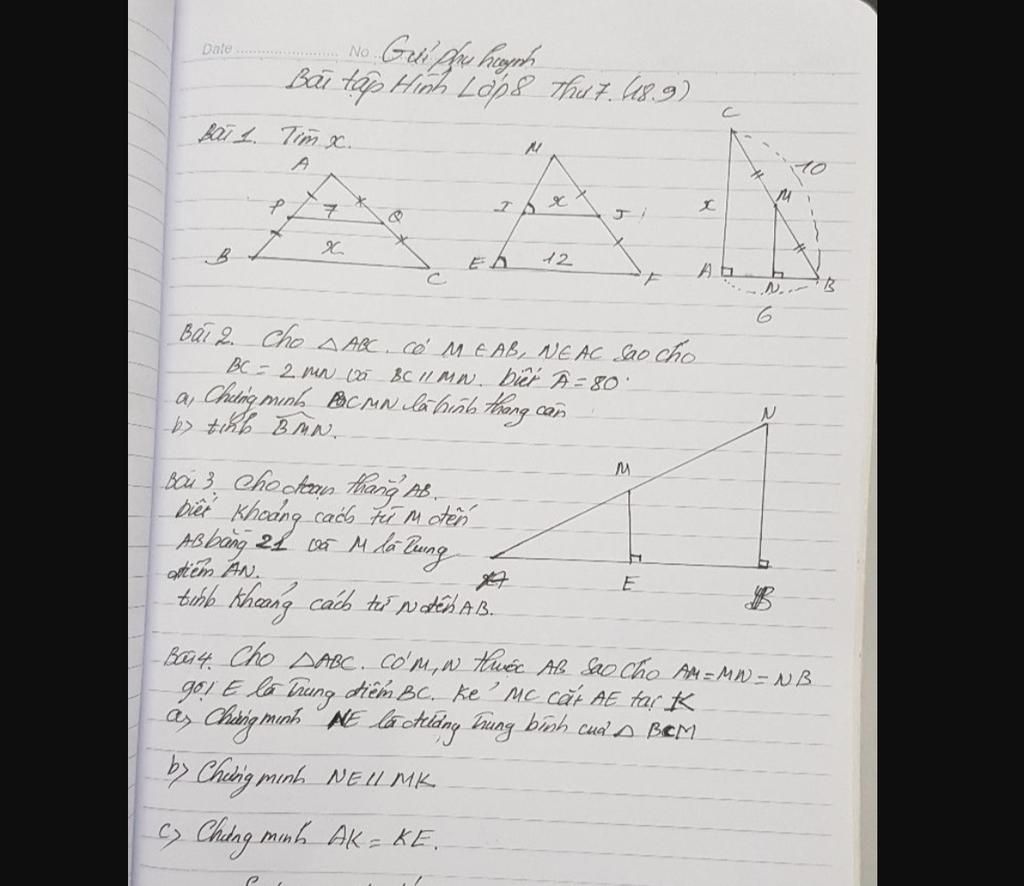 Date ........................ No. Gửi phụ huynh
Bài tập Hình Lớp 8 Thứ 7. (18.9)
Bài 1. Tìm x.
A
P 7 Q
x
B C
M
I x J
E 12 F
C
10
x M
A N B
6
Bài 2. Cho △ABC. Có M ∈ AB, N ∈ AC sao cho
BC = 2 MN và BC // MN. biết Â = 80°
a, Chứng minh BCMN là hình thang cân
b> tính BMN.
Bài 3. Cho đoạn thẳng AB.
biết Khoảng cách từ M đến
AB bằng 21 và M là trung
điểm AN.
tính Khoảng cách từ N đến AB.
N
M
A E B
Bài 4. Cho △ABC. Có M, N thuộc AB sao cho AM = MN = NB
gọi E là trung điểm BC. Kẻ MC cắt AE tại K
a> Chứng minh NE là đường trung bình của △ BCM
b> Chứng minh NE // MK
c> Chứng minh AK = KE.